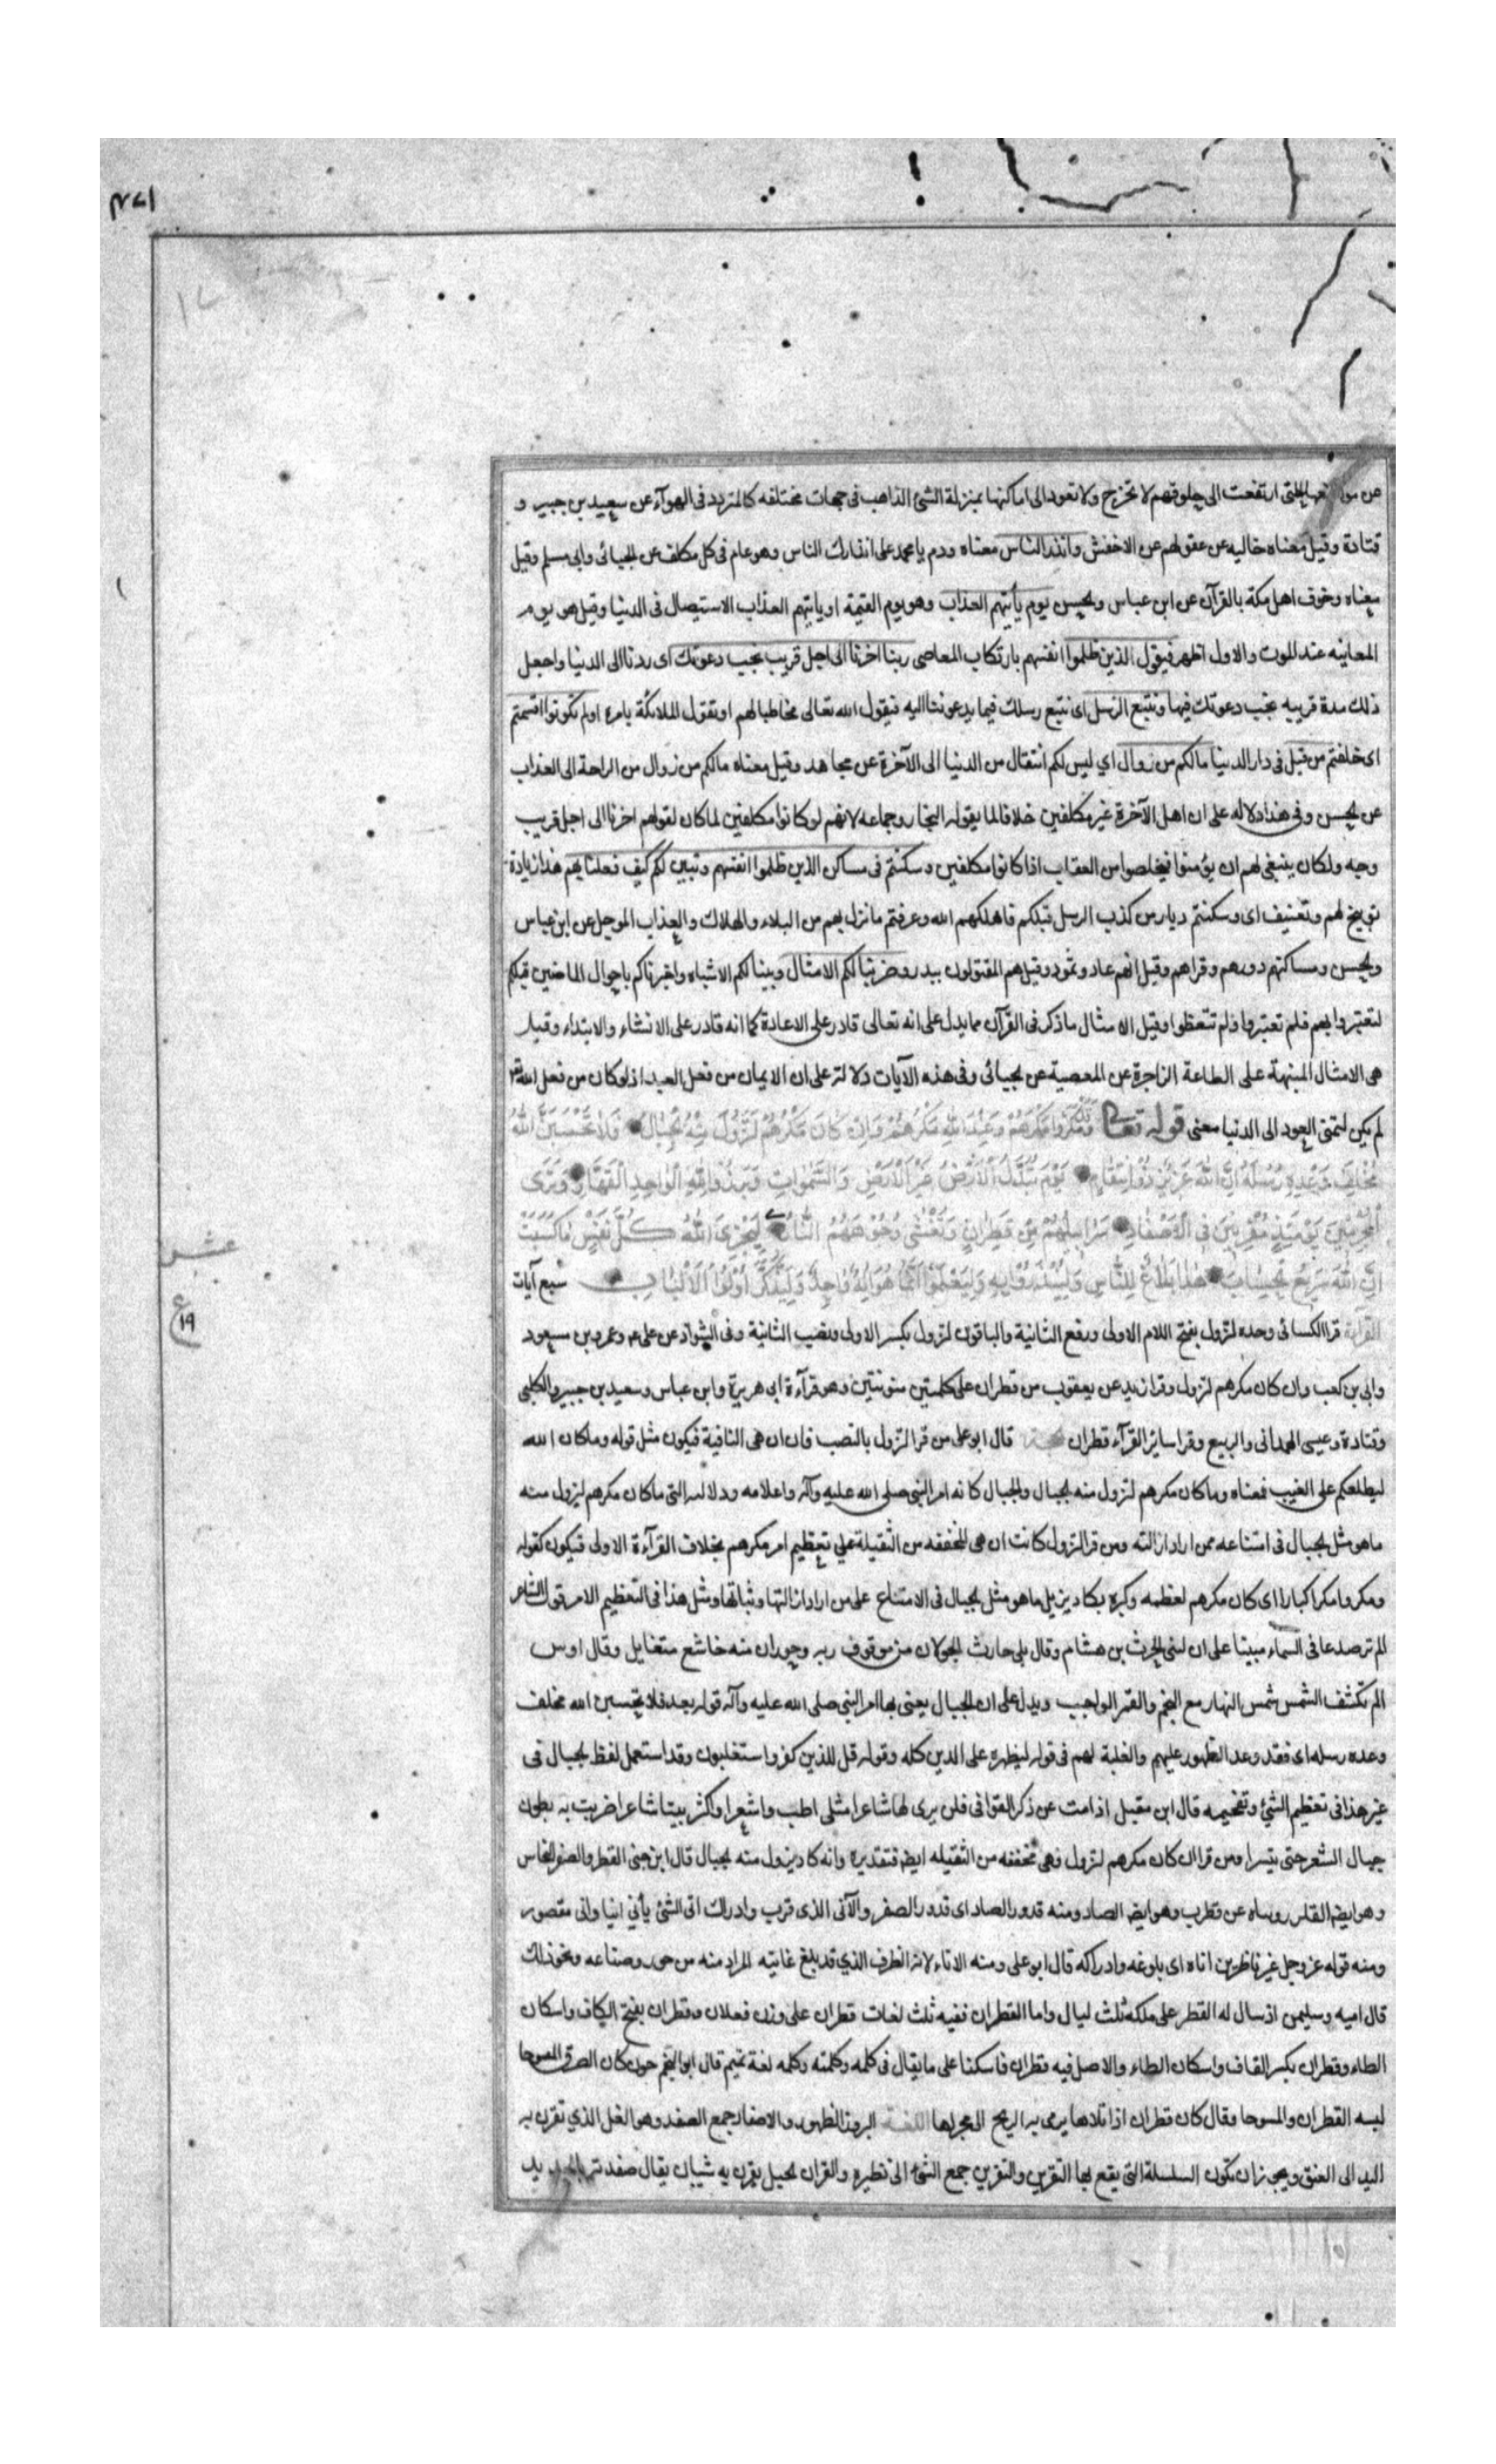 ١٧٣
عن مواضعها التى ارتفعت الى حلوقهم لا تخرج ولا تعود الى اماكنها بمنزلة الشئ الذاهب فى جهات مختلفه كالمتردد فى الهوآء عن سعيد بن جبير و
قتادة وقيل معناه خاليه عن عقولهم عن الاخفش وانذر الناس معناه ودم يا محمد على انذارك الناس وهو عام فى كل مكلف عن الجبائى وابى مسلم وقيل
معناه وخوف اهل مكة بالقرآن عن ابن عباس والحسن يوم يأتيهم العذاب وهو يوم القيمة او ياتيهم العذاب الاستيصال فى الدنيا وقيل هو يوم
المعاينه عند الموت والاول اظهر فيقول الذين ظلموا انفسهم بارتكاب المعاصى ربنا اخرنا الى اجل قريب نجب دعوتك اى ردنا الى الدنيا واجعل
ذلك مدة قريبه نجب دعوتك فيها ونتبع الرسل اى نتبع رسلك فيما يدعوننا اليه فيقول الله تعالى مخاطبا لهم او تقول الملائكة بامره اولم تكونوا اقسمتم
اى حلفتم من قبل فى دار الدنيا مالكم من زوال اي ليس لكم انتقال من الدنيا الى الآخرة عن مجاهد وقيل معناه مالكم من زوال من الراحة الى العذاب
عن الحسن وفى هذا دلاله على ان اهل الآخرة غير مكلفين خلافا لما يقوله النجار وجماعه لانهم لو كانوا مكلفين لما كان لقولهم اخرنا الى اجل قريب
وجه ولكان ينبغى لهم ان يؤمنوا فيخلصوا من العقاب اذا كانوا مكلفين وسكنتم فى مساكن الذين ظلموا انفسهم وتبين لكم كيف فعلنا بهم هذا زيادة
توبيخ لهم وتعنيف اى وسكنتم ديار من كذب الرسل قبلكم فاهلكهم الله وعرفتم ما نزل بهم من البلاء والهلاك والعذاب الموجل عن ابن عباس
والحسن ومساكنهم دورهم وقراهم وقيل انهم عاد وثمود وقيل هم المقتولون ببدر وضربنا لكم الامثال وبينا لكم الاشباه واخبرناكم باحوال الماضين قبلكم
لتعتبروا بهم فلم تعتبروا ولم تتعظوا وقيل الامثال ما ذكر فى القرآن مما يدل على انه تعالى قادر على الاعادة كما انه قادر على الانشاء والابتداء وقيل
هى الامثال المنبهة على الطاعة الزاجرة عن المعصية عن الجبائى وفى هذه الآيات دلالة على ان الايمان من فعل العبد اذ لو كان من فعل الله تعالى
لم يكن لتمنى العود الى الدنيا معنى قوله تعالى وَقَدْ مَكَرُوا مَكْرَهُمْ وَعِنْدَ اللهِ مَكْرُهُمْ وَاِنْ كَانَ مَكْرُهُمْ لِتَزُولَ مِنْهُ الْجِبَالُ فَلَا تَحْسَبَنَّ اللهَ
مُخْلِفَ وَعْدِهِ رُسُلَهُ اِنَّ اللهَ عَزِيزٌ ذُو انْتِقَامٍ يَوْمَ تُبَدَّلُ الْاَرْضُ غَيْرَ الْاَرْضِ وَالسَّمٰوَاتُ وَبَرَزُوا لِلّٰهِ الْوَاحِدِ الْقَهَّارِ وَتَرَى
الْمُجْرِمِينَ يَوْمَئِذٍ مُقَرَّنِينَ فِى الْاَصْفَادِ سَرَابِيلُهُمْ مِنْ قَطِرَانٍ وَتَغْشٰى وُجُوهَهُمُ النَّارُ لِيَجْزِىَ اللهُ كُلَّ نَفْسٍ مَا كَسَبَتْ
اِنَّ اللهَ سَرِيعُ الْحِسَابِ هٰذَا بَلَاغٌ لِلنَّاسِ وَلِيُنْذَرُوا بِهِ وَلِيَعْلَمُوا اَنَّمَا هُوَ اِلٰهٌ وَاحِدٌ وَلِيَذَّكَّرَ اُولُوا الْاَلْبَابِ سبع آيات
عشر
ع ١٩
القرآءة قرا الكسائى وحده لتزول بفتح اللام الاولى ورفع الثانية والباقون لتزول بكسر الاولى ونصب الثانية وفى الشواذ عن على ع وعمر وبن مسعود
وابى بن كعب وان كان مكرهم لتزول وقرا زيد عن يعقوب من قطران على كلمتين منونتين وهو قرآءة ابى هريرة وابن عباس وسعيد بن جبير والكلبى
وقتادة وعيسى الهمدانى والربيع وقرا سائر القرآء قطران الحجة قال ابو على من قرا لتزول بالنصب فان ان هى النافية فيكون مثل قوله وما كان الله
ليطلعكم على الغيب فمعناه وما كان مكرهم لتزول منه الجبال والجبال كانه امر النبى صلى الله عليه وآله واعلامه ودلالته التى ما كان مكرهم ليزول منه
ما هو مثل الجبال فى امتناعه ممن اراد ازالته ومن قرا لتزول كانت ان هى المخففه من الثقيلة على تعظيم امر مكرهم بخلاف القرآءة الاولى فيكون كقوله
ومكروا مكرا كبارا اى كان مكرهم لعظمه وكبره يكاد يزيل ما هو مثل الجبال فى الامتناع على من اراد ازالتها وثباتها ومثل هذا فى التعظيم الامر قول الشاعر
الم تر صدعا فى السماء مبينا على ابن لبنى الحرث بن هشام وقال بلى حارث الجولان من موقوف ربه وحوران منه خاشع متضايل وقال اوس
الم تكشف الشمس شمس النهار مع النجم والقمر الواجب ويدل على ان الجبال يعنى بها امر النبى صلى الله عليه وآله قوله بعد فلا تحسبن الله مخلف
وعده رسله اى فقد وعد الظهور عليهم والغلبة لهم فى قوله ليظهره على الدين كله وقوله قل للذين كفروا ستغلبون وقد استعمل لفظ الجبال فى
غير هذا فى تعظيم الشئ وتفخيمه قال ابن مقبل اذا مت عن ذكر القوافى فلن يرى لها شاعرا مثلى اطب واشعرا واكثر بيتا شاعرا ضربت به بطون
جبال الشعر حتى تيسرا ومن قرا ان كان مكرهم لتزول فهى مخففه من الثقيله ايضا فتقديره وانه كاد يزول منه الجبال قال ابن جنى القطر والصفر النحاس
وهو ايضا الفلز رويناه عن قطرب وهو ايضا الصاد ومنه قدور الصاد اى قدور الصفر والآنى الذى قرب وادراك انى الشئ يأنى انيا وانى مقصور
ومنه قوله عز وجل غير ناظرين اناه اى بلوغه وادراكه قال ابو على ومنه الاناء لانه الظرف الذي قد بلغ غايته المراد منه من حرز وصناعه ونحو ذلك
قال اميه وسليمن اذ سال له القطر على ملكه ثلث ليال واما القطران ففيه ثلث لغات قطران على وزن فعلان وقطران بفتح الكاف واسكان
الطاء وقطران بكسر القاف واسكان الطاء والاصل فيه قطران فاسكنا على ما يقال فى كلمه وكلمته وكلمه لغة تميم قال ابو النجم جون كان العرق المسوحا
لبسه القطران والمسوحا وقال كان قطران اذا تلاها يرمى به الريح الى مجراها اللغة البروز الظهور والاصفاد جمع الصفد وهو الغل الذي تقرن به
اليد الى العنق ويجوز ان تكون السلسلة التى يقع بها التقرين والتقرين جمع الشئ الى نظيره والقران الحبل يقرن به شيئان يقال صفدته بالحديد